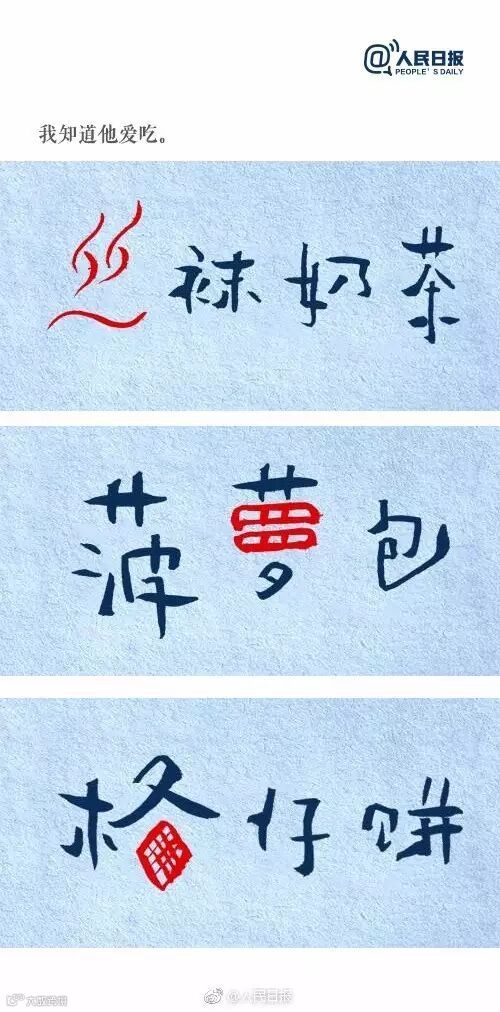 @人民日报
PEOPLE'S DAILY
我知道他爱吃。
丝袜奶茶
菠萝包
格仔饼
@人民日报